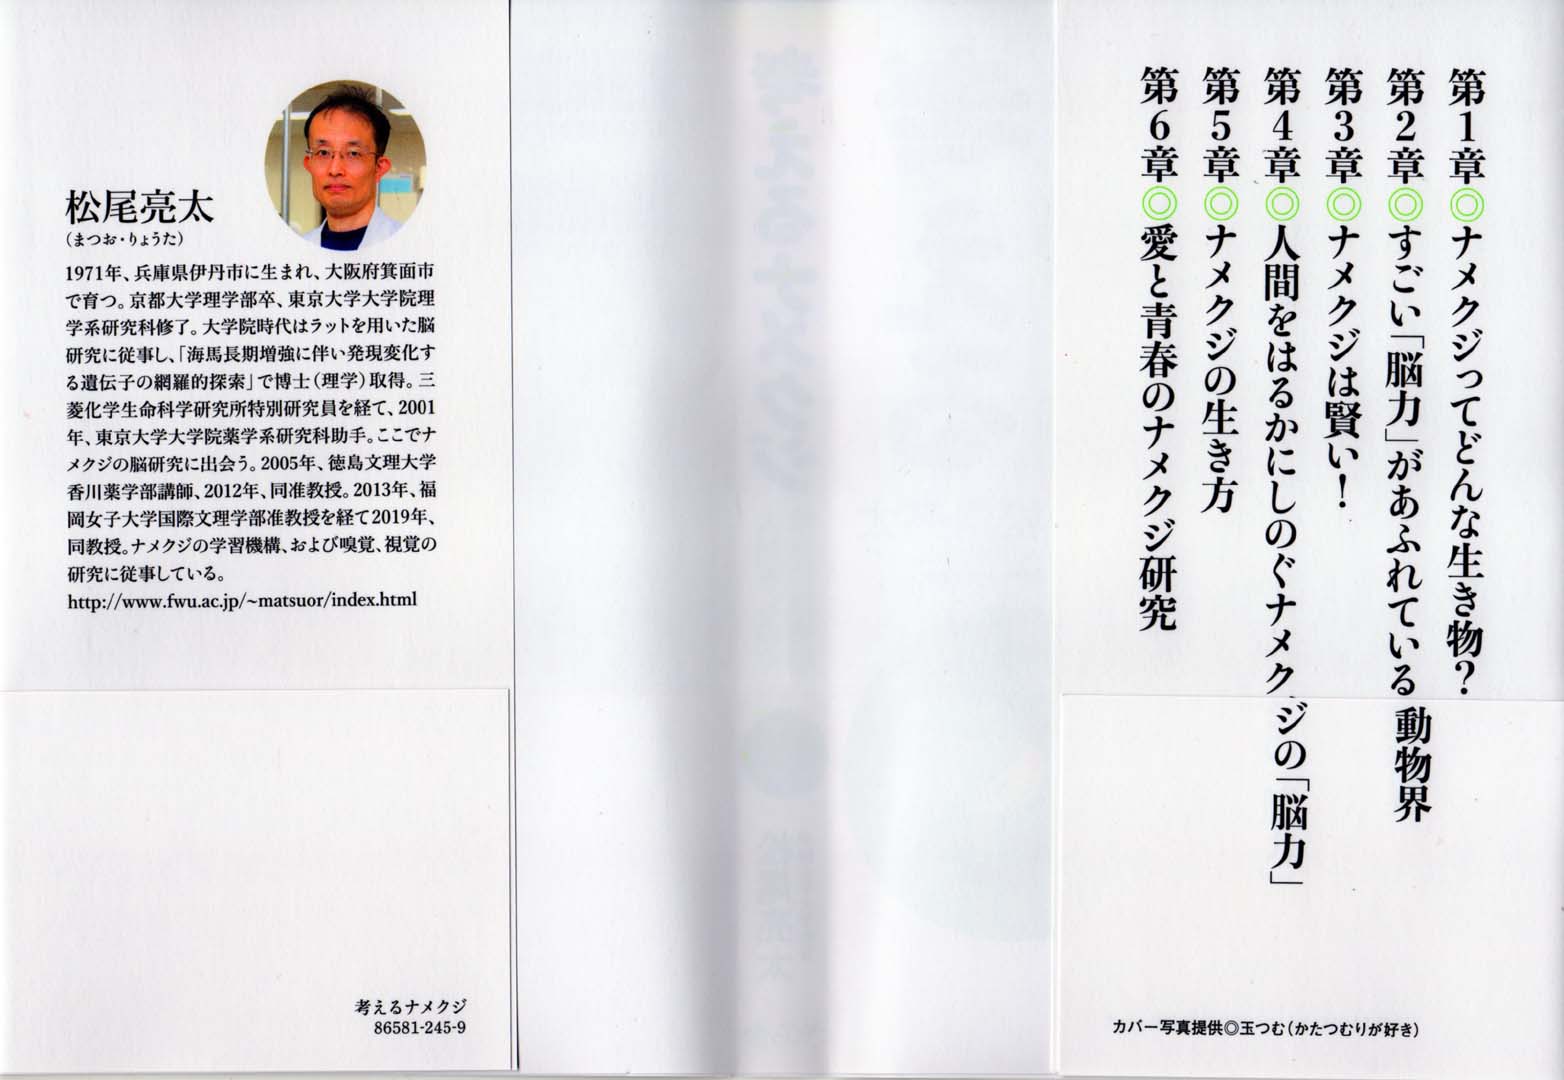 松尾亮太
（まつお・りょうた）
1971年、兵庫県伊丹市に生まれ、大阪府箕面市
で育つ。京都大学理学部卒、東京大学大学院理
学系研究科修了。大学院時代はラットを用いた脳
研究に従事し、「海馬長期増強に伴い発現変化す
る遺伝子の網羅的探索」で博士（理学）取得。三
菱化学生命科学研究所特別研究員を経て、2001
年、東京大学大学院薬学系研究科助手。ここでナ
メクジの脳研究に出会う。2005年、徳島文理大学
香川薬学部講師、2012年、同准教授。2013年、福
岡女子大学国際文理学部准教授を経て2019年、
同教授。ナメクジの学習機構、および嗅覚、視覚の
研究に従事している。
http://www.fwu.ac.jp/~matsuor/index.html
考えるナメクジ
86581-245-9
第1章◎ナメクジってどんな生き物？
第2章◎すごい「脳力」があふれている動物界
第3章◎ナメクジは賢い！
第4章◎人間をはるかにしのぐナメクジの「脳力」
第5章◎ナメクジの生き方
第6章◎愛と青春のナメクジ研究
カバー写真提供◎玉つむ（かたつむりが好き）